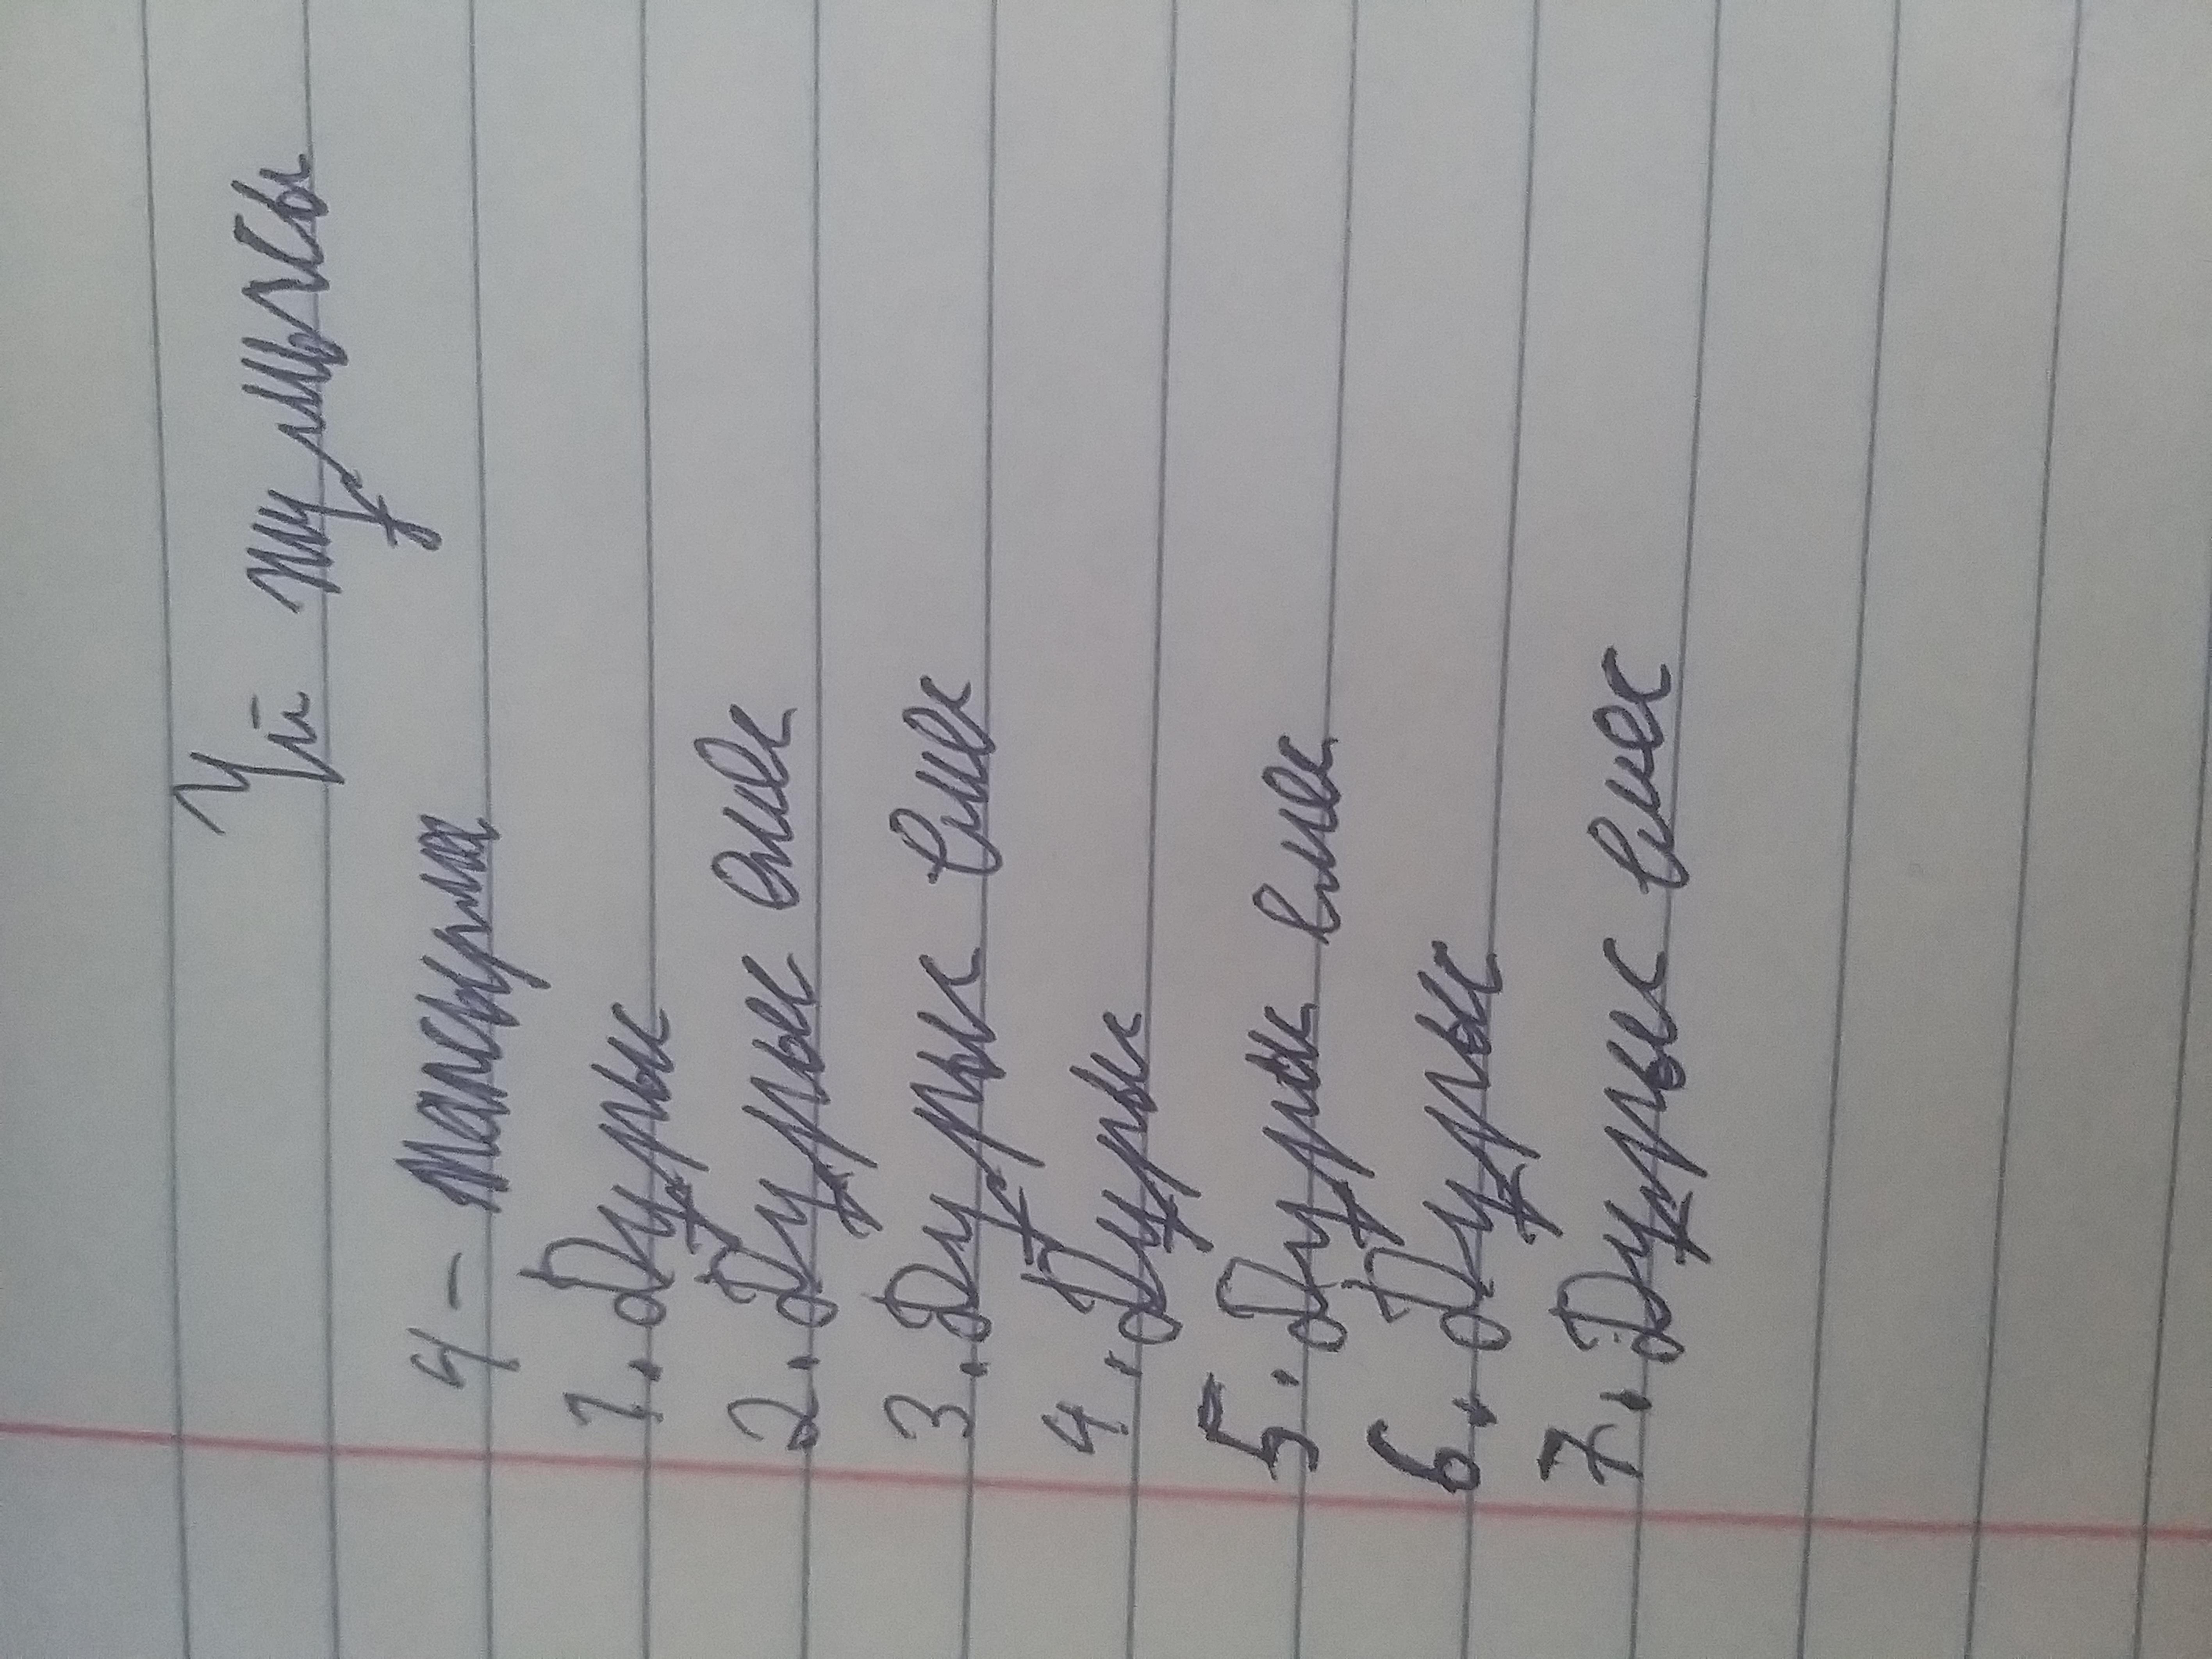 Үй жұмысы
4 - тапсырма
1. Дұрыс
2. Дұрыс емес
3. Дұрыс емес
4. Дұрыс
5. Дұрыс емес
6. Дұрыс
7. Дұрыс емес